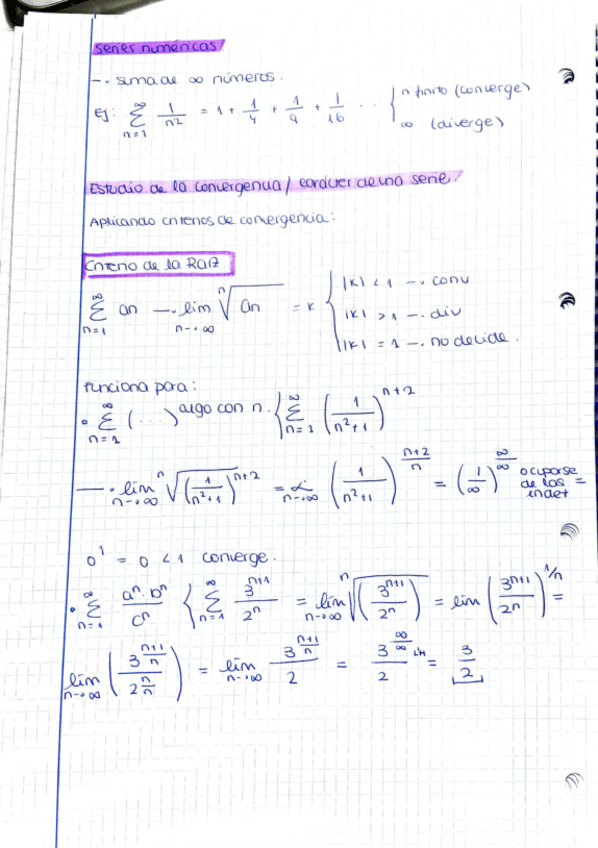 series numéricas/
→ suma de ∞ números.
Ej: ∑_{n=1}^{∞} 1/n2 = 1 + 1/4 + 1/9 + 1/16 ... { nº finito (converge)
∞ (diverge)
Estudio de la convergencia / carácter de una serie/
Aplicando criterios de convergencia:
Criterio de la RAIZ
∑_{n=1}^{∞} an → lim_{n→∞} ⁿ√an = k { |k| < 1 → conv
|k| > 1 → div
|k| = 1 → no decide.
Funciona para:
• ∑_{n=1}^{∞} (...)^{algo con n} { ∑_{n=1}^{∞} (1/(n²+1))^{n+2}
→ lim_{n→∞} ⁿ√(1/(n²+1))^{n+2} = lim_{n→∞} (1/(n²+1))^{(n+2)/n} = (1/∞)^{∞/∞} ocuparse de las indet =
0¹ = 0 < 1 converge.
• ∑_{n=1}^{∞} (aⁿ · bⁿ)/cⁿ { ∑_{n=1}^{∞} 3^{n+1}/2ⁿ = lim_{n→∞} ⁿ√(3^{n+1}/2ⁿ) = lim (3^{n+1}/2ⁿ)^{1/n} =
lim_{n→∞} (3^{(n+1)/n}/2^{n/n}) = lim_{n→∞} 3^{(n+1)/n}/2 = 3^{∞/∞}/2 = 3/2